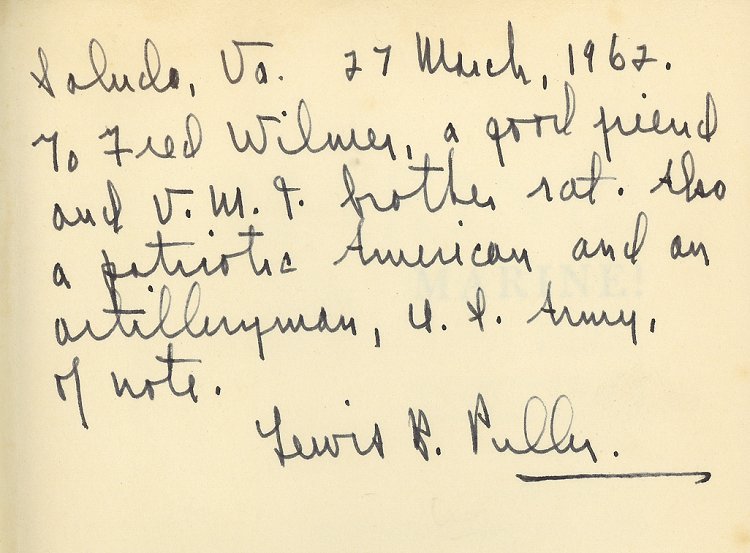 Saluda, Va. 27 March, 1962.
To Fred Wilmer, a good friend
and V. M. I. brother rat. Also
a patriotic American and an
artilleryman, U. S. Army,
of note.
Lewis B. Puller.
MARINE!